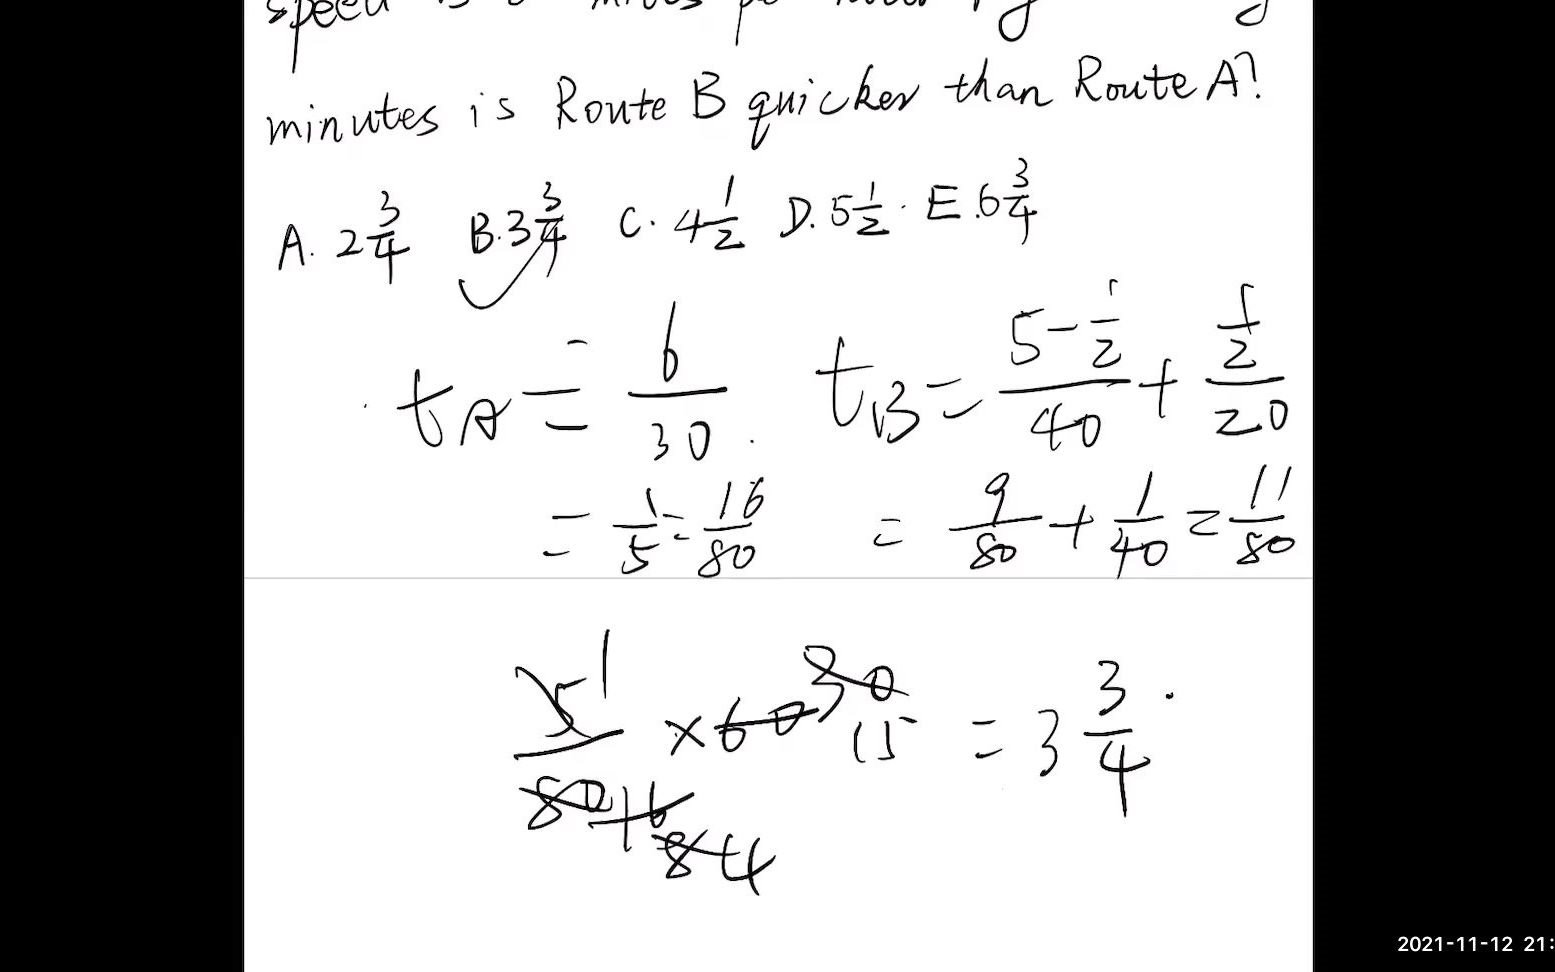 speed is miles
minutes is Route B quicker than Route A?
A. 2 3/4 B. 3 3/4 C. 4 1/2 D. 5 1/2 E. 6 3/4
tA = 6/30 tB = (5 - 1/2)/40 + (1/2)/20
= 1/5 = 16/80 = 9/80 + 1/40 = 11/80
5 1 × 60 30 15 = 3 3/4
80 16 8 4
2021-11-12 21: